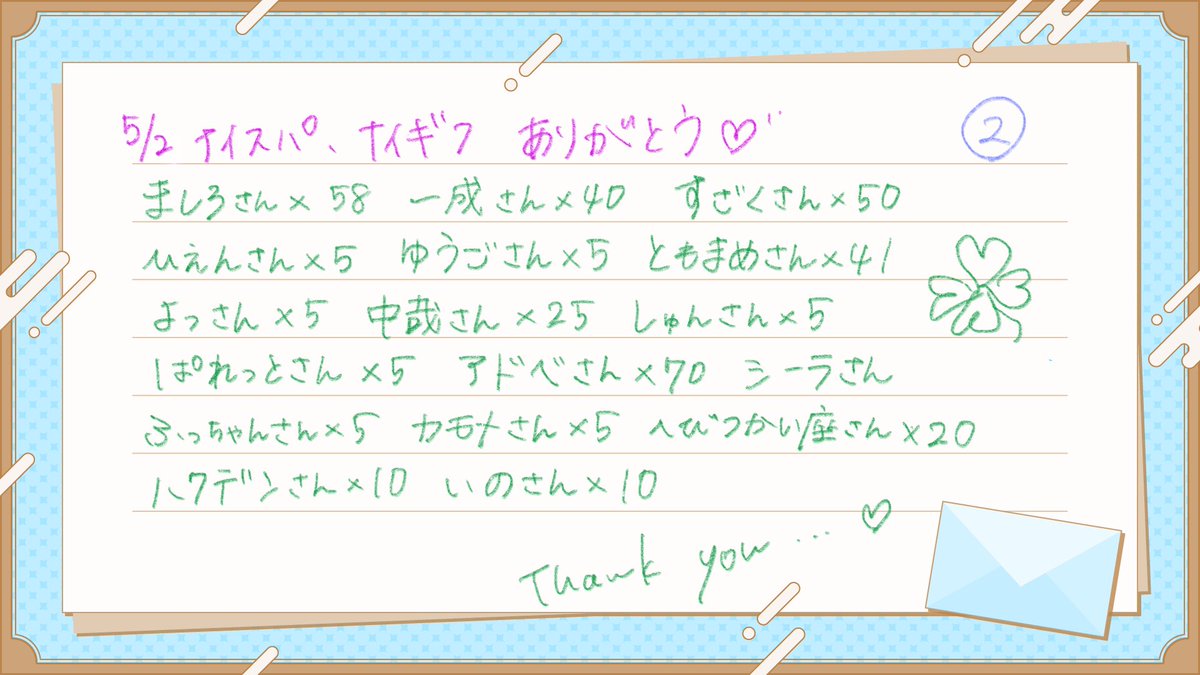 5/2 ナイスパ、ナイギフ ありがとう♡ ②
ましろさん×58 一成さん×40 すざくさん×50
ひえんさん×5 ゆうごさん×5 ともまめさん×41
よっさん×5 中哉さん×25 しゅんさん×5
ぱれっとさん×5 アドベさん×70 シーラさん
ふっちゃんさん×5 カモメさん×5 へびつかい座さん×20
ハクデンさん×10 いのさん×10
Thank you...♡